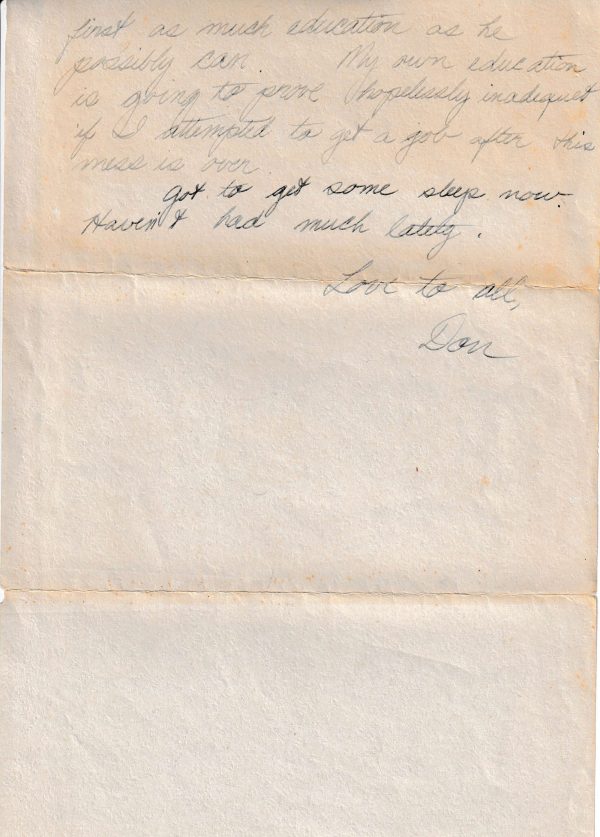 first as much education as he
possibly can. My own education
is going to prove hopelessly inadequet
if I attempted to get a job after this
mess is over.
Got to get some sleep now.
Haven't had much lately.
Love to all,
Don